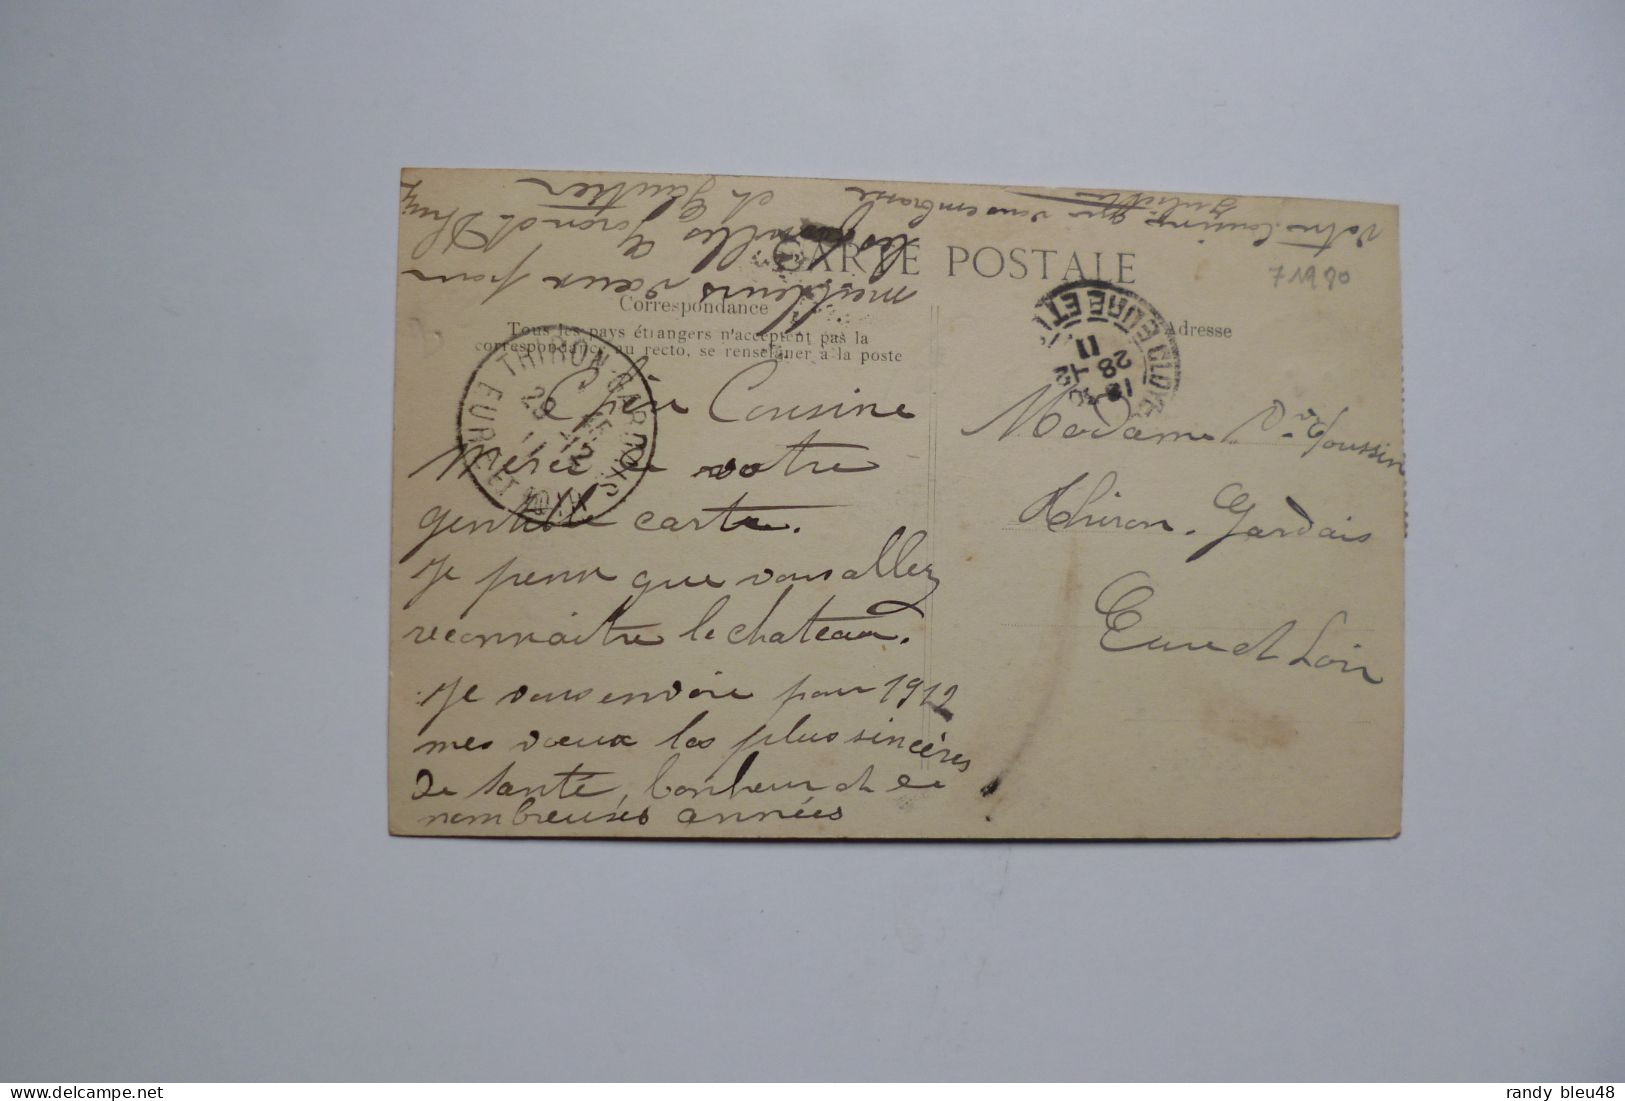 CARTE POSTALE
Correspondance
Tous les pays étrangers n'acceptent pas la
correspondance au recto, se renseigner à la poste
Adresse
71990
Chère Cousine
Merci de votre
gentille carte.
Je pense que vous allez
reconnaître le chateau.
Je vous envoie pour 1912
mes vœux les plus sincères
de santé, bonheur et de
nombreuses années
meilleurs vœux pour
les familles
et Gautier
Votre Cousine qui vous embrasse
Juliette
Madame Poussin
Thiron-Gardais
Eure et Loir
THIRON-GARDAIS
EURE ET LOIR
CLOYES
EURE ET
28
12
11
randy bleu48